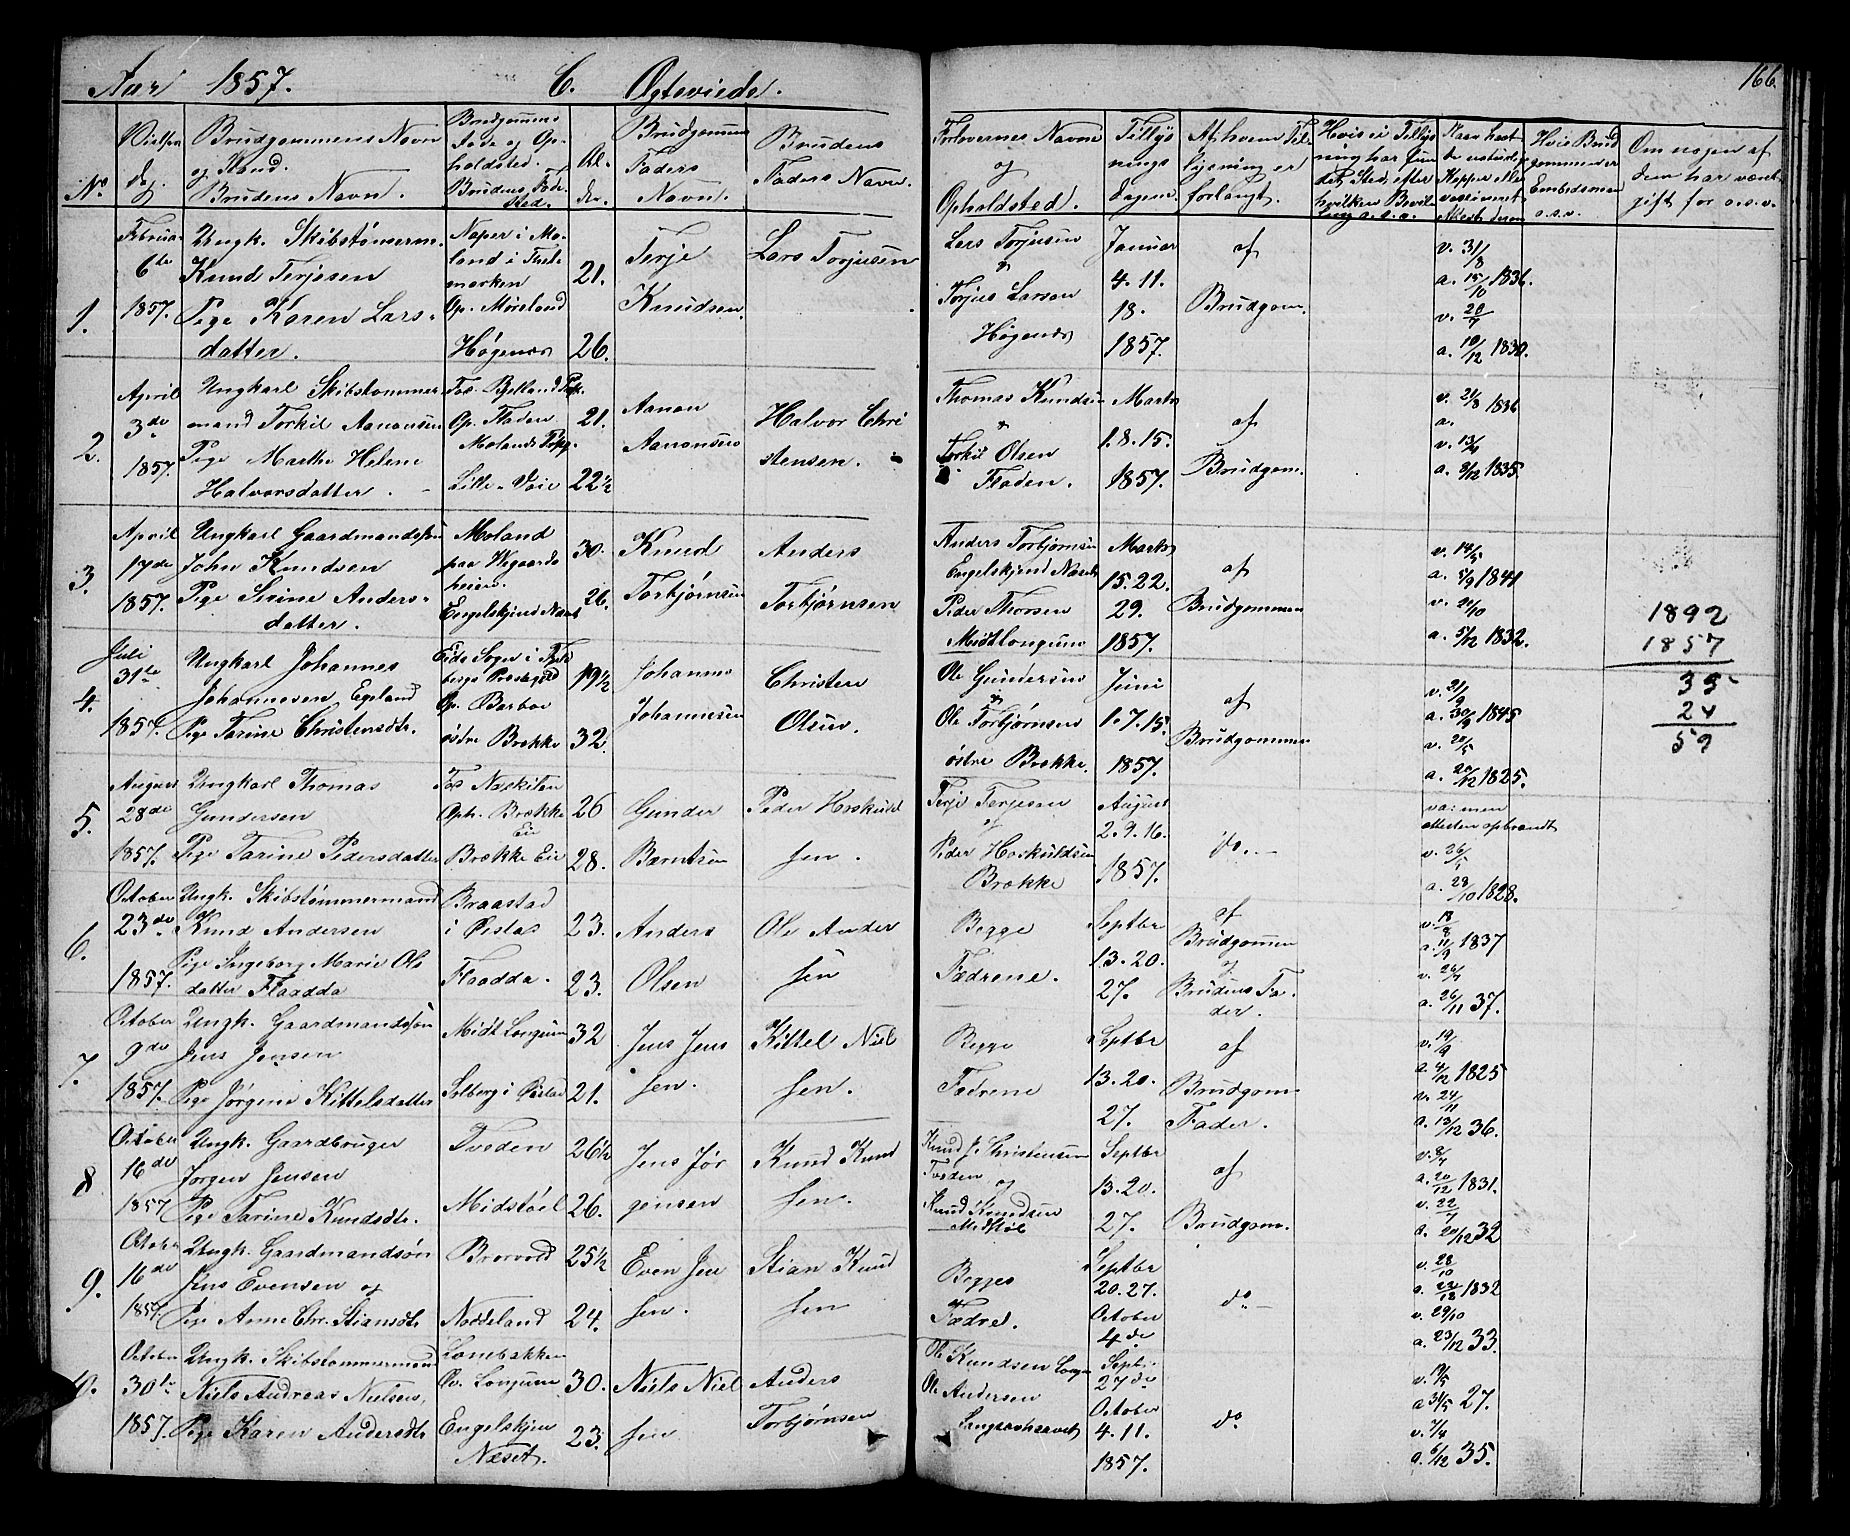 Aar 1857. C. Ægteviede.
166.
No.
Vielsens
dag.
Brudgommens Navn
og Stand.
Brudens Navn.
Brudgommens
Føde og Op-
holdsted.
Brudens Føde-
sted.
Al-
der.
Brudgommens
Faders
Navn.
Brudens
Faders Navn.
Forlovernes Navne
og
Opholdsted.
Tillys
nings
dagene
Af hvem Til-
lysning er
forlangt.
Hvis Brud
gommen er
Embedsman
o.s.v.
Om nogen af
dem har været
gift før o.s.v.
1.
Februar
6te
1857.
Ungk. Skibstømerm.
Knud Terjesen
Pige Karen Lars-
datter.
Naper i Mo-
land i Thele
marken
Op. Møreland
Høgenæs
21.
26.
Terje
Knudsen
Lars Torjusen
Lars Torjusen
&
Torjus Larsen
Høgenæs
Januar
4. 11.
18.
1857.
af
Brudgom.
v. 31/8
a. 15/10 1836.
v. 20/7
a. 10/12 1830.
2.
April
3de
1857.
Ungkarl Skibstømmer
mand Torkil Aanonsen
Pige Marthe Helene
Halvorsdatter.
Fød. Bjelland Pgj.
Op. Fladen
Molands Pgj.
Lille-Voie
21.
22½
Aanon
Aanonsen
Halvor Chri
stensen.
Thomas Knudsen
&
Torkil Olsen
Fladen.
Marts
1. 8. 15.
1857.
af
Brudgom.
v. 21/8 1836
a.
v. 13/4
a. 8/12 1835.
3.
April
17de
1857.
Ungkarl Gaardmandssøn
John Knudsen
Pige Sirine Anders-
datter.
Moland
paa Wegaards
heien.
Engelskjens Næset
30.
26.
Knud
Torbjørnsen
Anders
Torbjørnsen
Anders Torbjørnsen
Engelskjens Næset
Peder Thorsen
Midt Longum
Marts
15. 22.
29.
1857.
af
Brudgommen
v. 14/5
a. 5/9 1841
v. 20/10
a. 5/12 1832.
1892
1857
35
24
59
4.
Juli
31te
1857.
Ungkarl Johannes
Johannesen Egeland
Pige Tarine Christensdtr.
Eids Sogn i Fyde
bergs Præstegjeld
Op. Barboe
østre Brække
19½
32.
Johannes
Johannesen
Christen
Olsen.
Ole Gundersen
&
Ole Torbjørnsen
østre Brække.
Juni
1. 7. 15.
1857.
af
Brudgommen
v. 21/9
a. 30/9 1845
v. 20/5
a. 20/12 1825.
5.
August
28de
1857.
Ungkarl Thomas
Gundersen
Pige Tarine Pedersdatter
Fød Næskilen
Oph. Brække
Eie
Brække Eie
26
28.
Gunder
Berntsen
Peder Hoskuld
sen.
Terje Terjesen
og
Peder Hoskuldsen
Brække
August
2. 9. 16.
1857.
do.
va: men
attesten opbrændt
v. 26/5
a. 28/10 1828.
6.
October
23de
1857.
Ungk. Skibstømmermand
Knud Andersen
Pige Ingeborg Marie Ols
datter Flaadda
Braastad
i Øistad
Flaadda.
23.
23.
Anders
Olsen
Ole Ander
sen
Begge
Fædrene.
Septbr
13. 20.
27.
af
Brudgommen
og
Brudens Fa-
der.
v. 18/8
a. 11/9 1837
v. 26/7
a. 26/11 37.
7.
October
9de
1857.
Ungk. Gaardmandssøn
Jens Jensen
Pige Jørgine Kittelsdatter
Midt Longum
Solberg i Øistad
32
21.
Jens Jens
sen.
Kittel Niel
sen.
Begge
Fædrene
Septbr
13. 20.
27.
af
Brudgom-
Fader.
v. 19/9
a. 4/12 1825
v. 24/11
a. 13/12 36.
8
October
16de
1857
Ungk. Gaardbruger
Jørgen Jensen
Pige Tarine Knudsdtr.
Tveden
Midstøel
26½
26.
Jens Jør
gensen
Knud Knud
sen.
Knud J. Christensen
Tveden og
Knud Knudsen
Midstøl
Septbr
13. 20.
27.
af
Brudgom.
v. 8/4
a. 20/12 1831.
v. 22/7
a. 20/12 32
9.
October
16de
1857.
Ungk. Gaardmandsøn
Jens Evensen og
Pige Anne Chr. Stiansdtr.
Brovold
Nøddeland
25½
24.
Even Jen
sen.
Stian Knud
sen
Begges
Fædre.
Septbr
20. 27.
October
4de
do
v. 28/10
a. 22/12 1832
v. 29/10
a. 23/12 33.
10.
October
30te
1857.
Ungk. Skibstømmermand
Niels Andreas Nielsen,
Pige Karen Andersdtr.
Lonebakken
Øv. Longum
Engelskjen
Næset.
30.
23.
Niels Niel
sen
Anders
Torbjørnsen
Ole Knudsen Longum
Ole Andersen
Septbr.
27de
October
4. 11.
1857.
do
v. 19/5
a 31/5 27.
v. 7/4
a. 6/12 35.